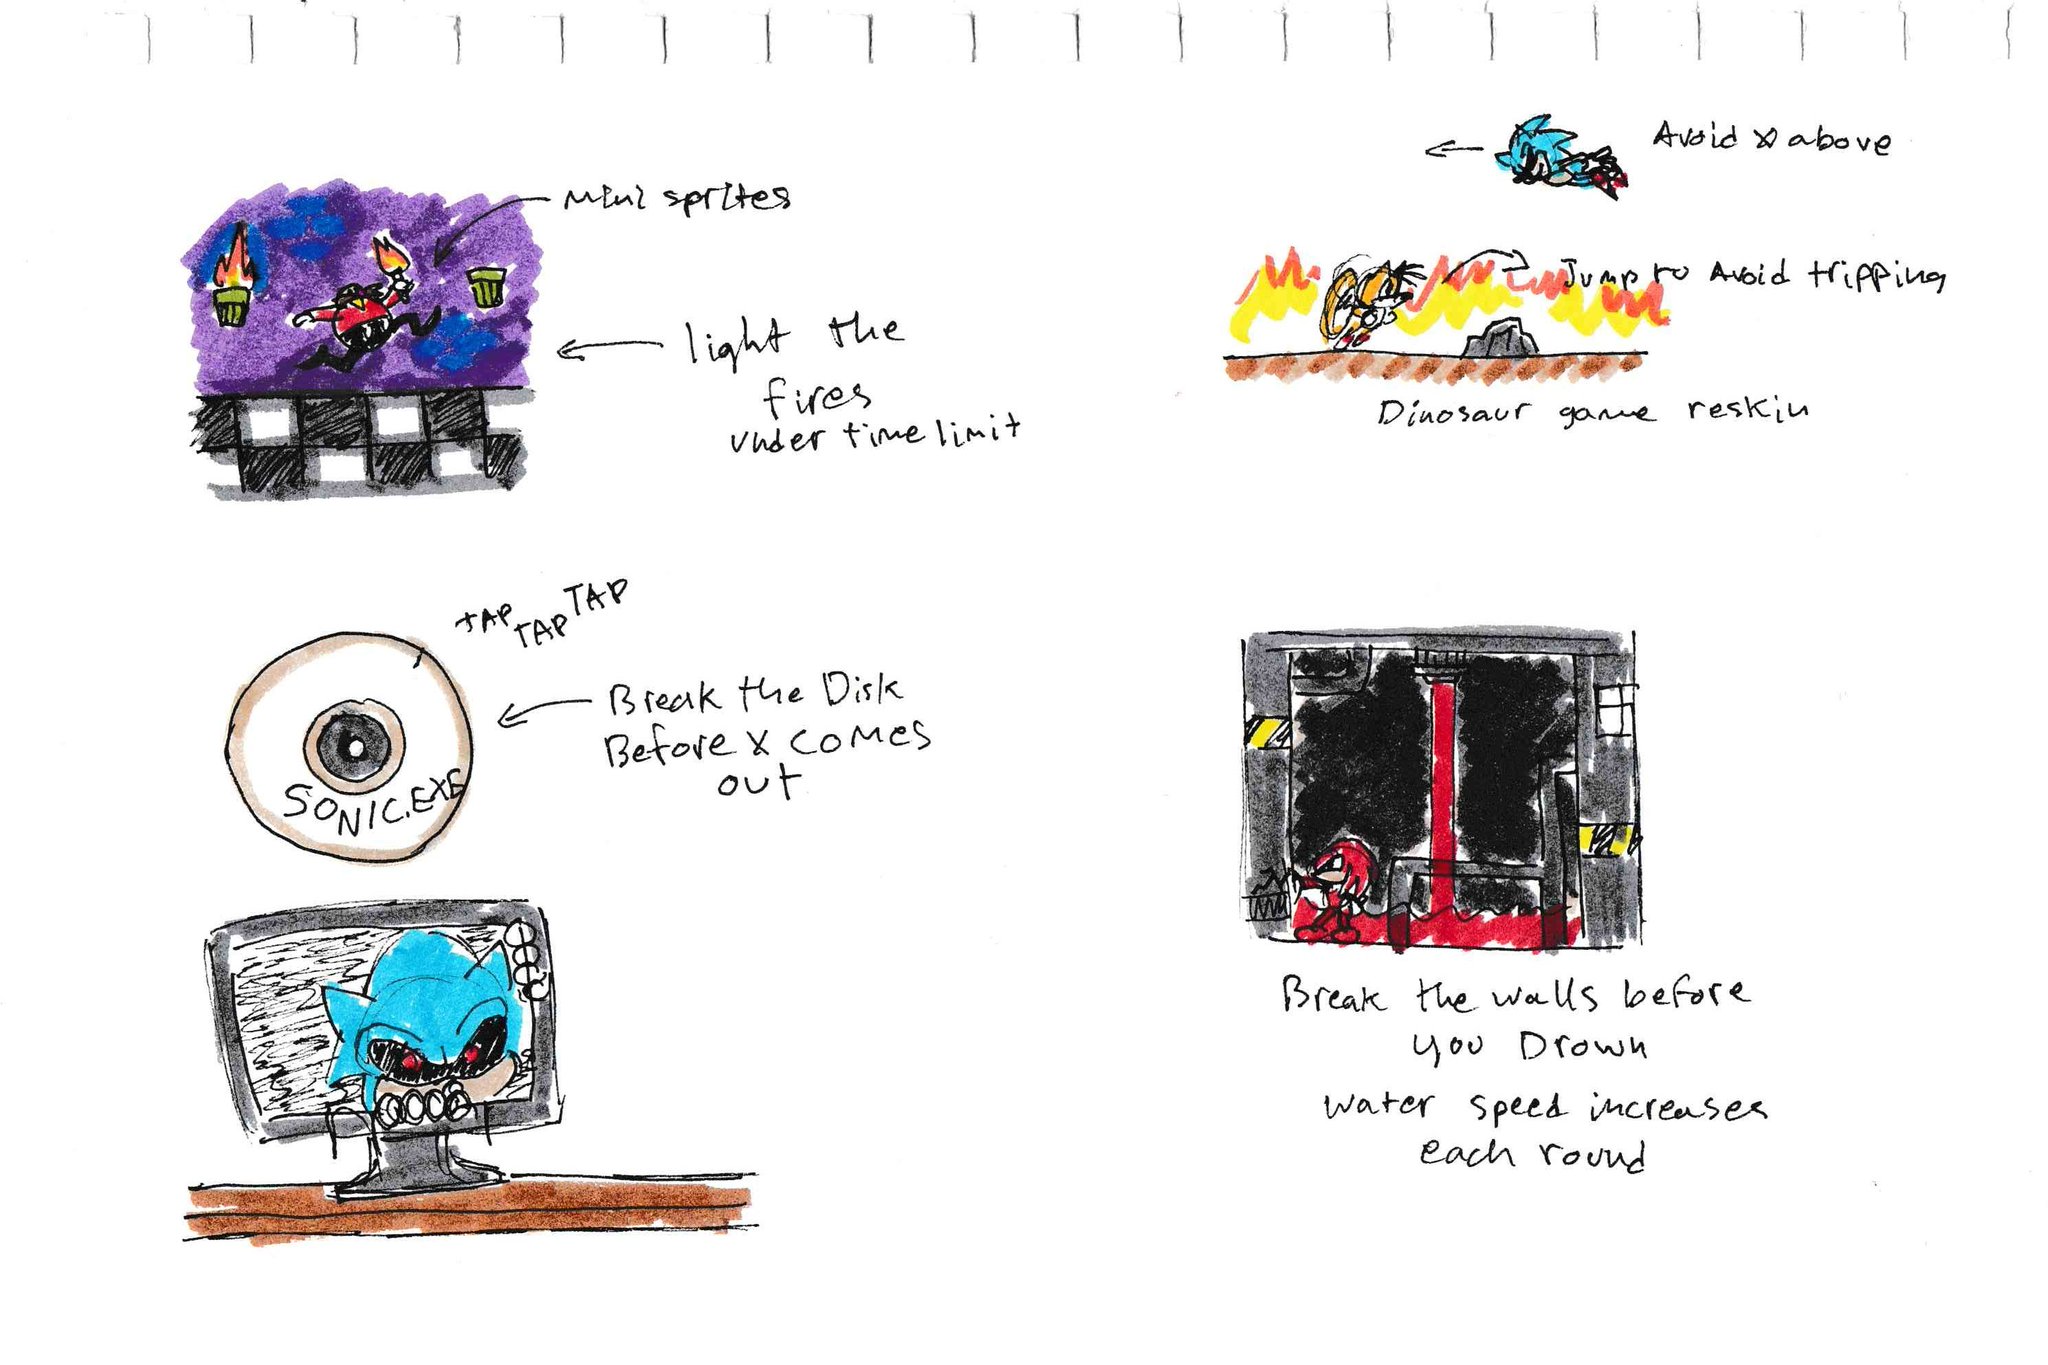 Mini sprites
light the
fires
under time limit
Avoid X above
Jump to Avoid tripping
Dinosaur game reskin
TAP TAP TAP
Break the Disk
Before X comes
out
SONIC.EXE
Break the walls before
you Drown
water speed increases
each round